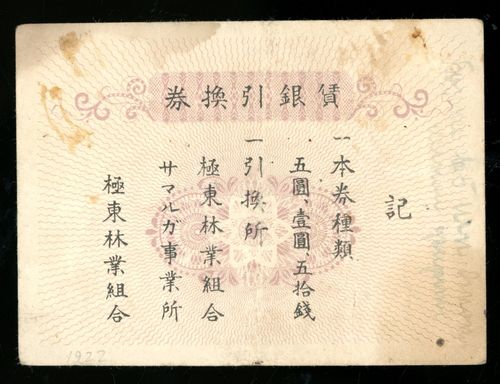 賃銀引換券
記
一本券種類
五圓、壹圓五拾錢
一引換所
極東林業組合
サマルガ事業所
極東林業組合
1922